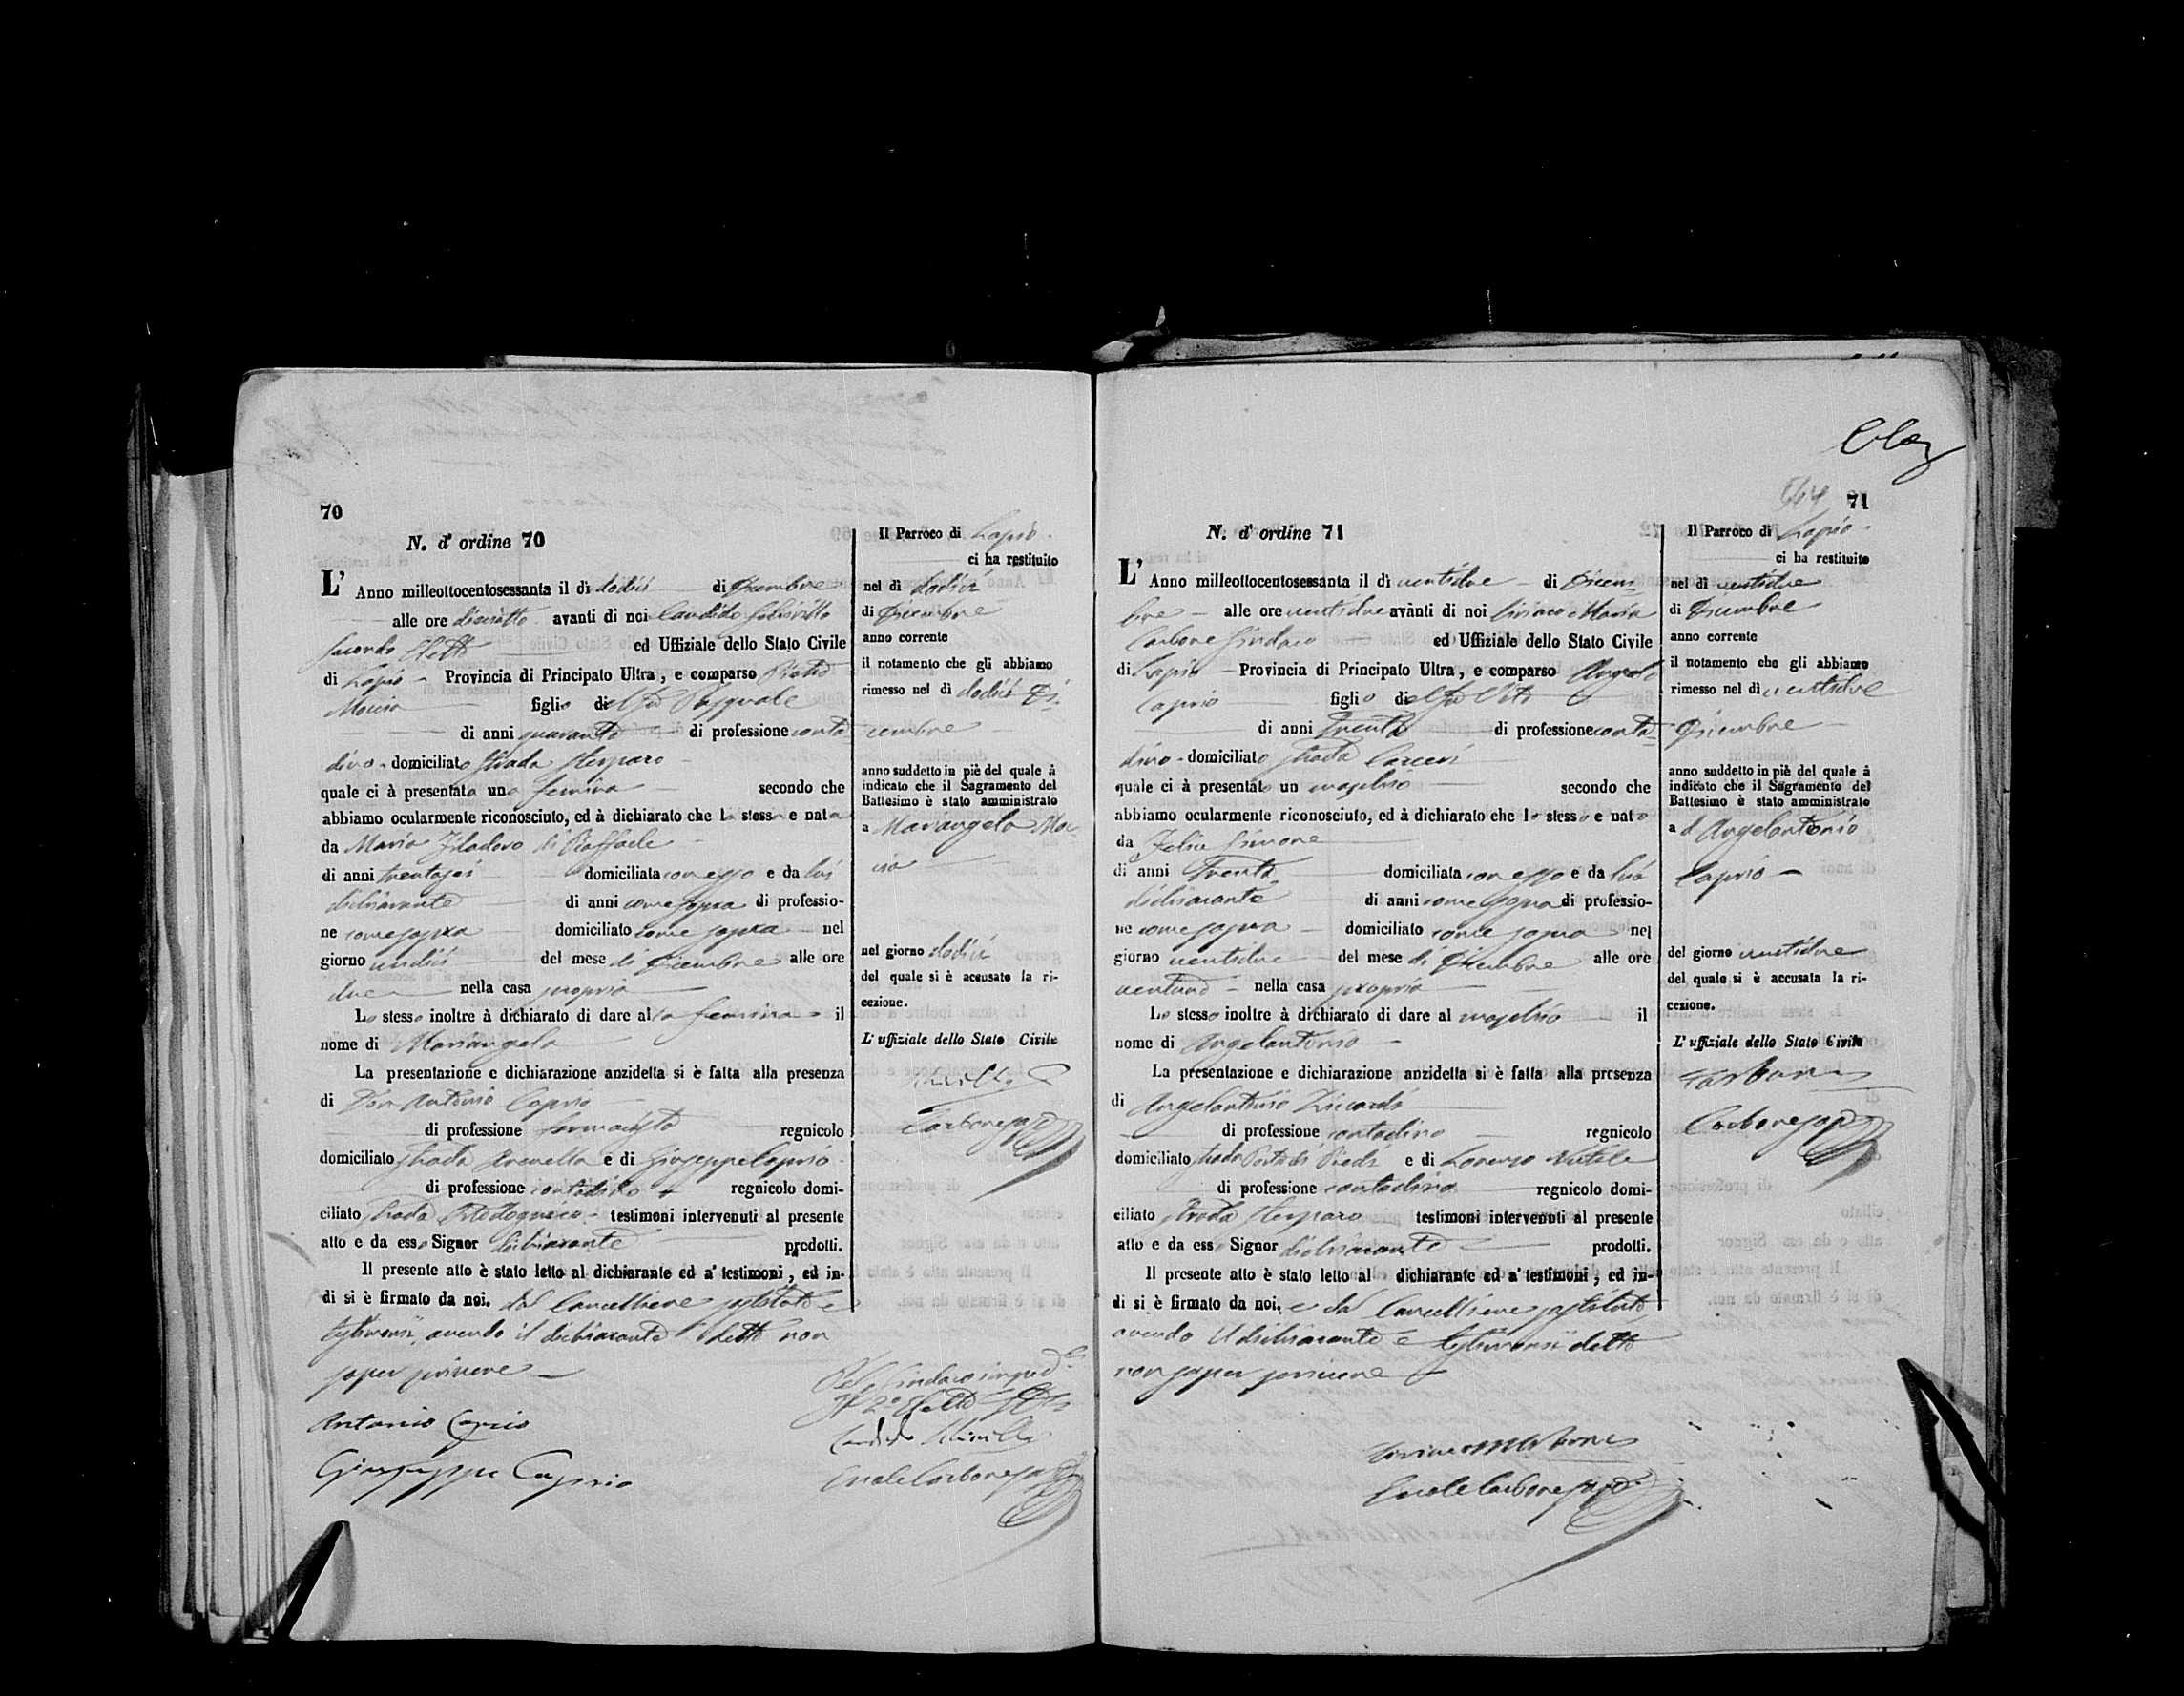 70
N. d' ordine 70
L' Anno milleottocentosessanta il dì dodici di Dicembre
alle ore diciotto avanti di noi Candido
secondo Eletto ed Uffiziale dello Stato Civile
di Lapio Provincia di Principato Ultra, e comparso
figlio del fu Pasquale
di anni quaranta di professione conta
dino domiciliato strada
quale ci à presentata una femina secondo che
abbiamo ocularmente riconosciuto, ed à dichiarato che la stessa e nata
da Maria di Raffaele
di anni trentasei domiciliata con esso e da lui
dichiarante di anni come sopra di professio-
ne come sopra domiciliato come sopra nel
giorno undici del mese di Dicembre alle ore
due nella casa propria
Lo stesso inoltre à dichiarato di dare alla femina il
nome di Mariangela
La presentazione e dichiarazione anzidetta si è fatta alla presenza
di Don Antonio Caprio
di professione farmacista regnicolo
domiciliato strada e di Giuseppe Caprio
di professione contadino regnicolo domi-
ciliato strada testimoni intervenuti al presente
atto e da esso Signor dichiarante prodotti.
Il presente atto è stato letto al dichiarante ed a' testimoni, ed in-
di si è firmato da noi, dal Cancelliere sostituto e
testimonii, avendo il dichiarante detto non
saper scrivere
Antonio Caprio
Giuseppe Caprio
Pel Sindaco imped
Il 2º Eletto
Candido
Ercole Carbone
Il Parroco di Lapio
ci ha restituito
nel dì dodici
di Dicembre
anno corrente
il notamento che gli abbiamo
rimesso nel dì dodici Di
cembre
anno suddetto in piè del quale à
indicato che il Sagramento del
Battesimo è stato amministrato
a Mariangela
nel giorno dodici
del quale si è accusato la ri-
cezione.
L' uffiziale dello Stato Civile
Carbone
71
N. d' ordine 71
L' Anno milleottocentosessanta il dì ventidue di Dicem
bre alle ore ventidue avanti di noi Ciriaco Maria
Carbone Sindaco ed Uffiziale dello Stato Civile
di Lapio Provincia di Principato Ultra, e comparso Angelo
Caprio figlio del fu Vito
di anni trenta di professione conta
dino domiciliato strada Carceri
quale ci à presentato un maschio secondo che
abbiamo ocularmente riconosciuto, ed à dichiarato che lo stesso e nato
da Felice Simone
di anni trenta domiciliata con esso e da lui
dichiarante di anni come sopra di professio-
ne come sopra domiciliato come sopra nel
giorno ventidue del mese di Dicembre alle ore
ventuno nella casa propria
Lo stesso inoltre à dichiarato di dare al maschio il
nome di Angelantonio
La presentazione e dichiarazione anzidetta si è fatta alla presenza
di Angelantonio
di professione contadino regnicolo
domiciliato strada e di Lorenzo
di professione contadino regnicolo domi-
ciliato strada testimoni intervenuti al presente
atto e da esso Signor dichiarante prodotti.
Il presente atto è stato letto al dichiarante ed a' testimoni, ed in-
di si è firmato da noi, e dal Cancelliere sostituto,
avendo il dichiarante e testimonii detto
non saper scrivere
Ercole Carbone
Il Parroco di Lapio
ci ha restituito
nel dì ventidue
di Dicembre
anno corrente
il notamento che gli abbiamo
rimesso nel dì ventidue
Dicembre
anno suddetto in piè del quale à
indicato che il Sagramento del
Battesimo è stato amministrato
a d Angelantonio
Caprio
del giorno ventidue
del quale si è accusata la ri-
cezione.
L' uffiziale dello Stato Civile
Carbone
Carbone